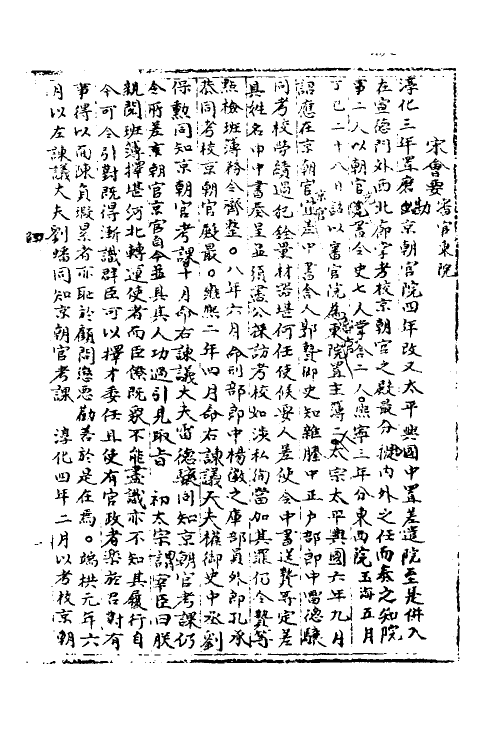 宋會要 審官東院
淳化三年置磨勘京朝官院四年改又太平興國中置差遣院至是併入
在宣德門外西北廊字考校京朝官之殿最分擬內外之任而奏之知院
事二人以朝官充書令史七人掌舍二人熙寧三年分東西院玉海五月
丁巳二十八日詔以審官院為東院置主簿二人太宗太平興國六年九月
詔應在京朝官宜差中書舍人郭贄御史知雜滕中正戶部郎中雷德驤
同考校勞績過犯銓量材器堪何任使候要人差使令中書送贄等定差
具姓名申中書奏呈並須盡公課訪考校如涉私徇當加其罪仍令贄等
點檢班簿務令齊整。八年六月命刑部郎中楊徽之庫部員外郎孔承
恭同考校京朝官殿最。雍熙二年四月命右諫議大夫權御史中丞劉
保勳同知京朝官考課十月命右諫議大夫雷德驤同知京朝官考課仍
令所差京朝官京官自令並具其人功過引見取旨 初太宗謂宰臣曰朕
親閱班簿擇堪河北轉運使者而臣僚既衆不能盡識亦不知其履行自
今可令引對既得漸識群臣可以擇才委任且使有官政者樂於召對有
事得以面陳負瑕累者亦恥於顧問懲惡勸善於是在焉。端拱元年六
月以左諫議大夫劉蟠同知京朝官考課 淳化四年二月以考校京朝